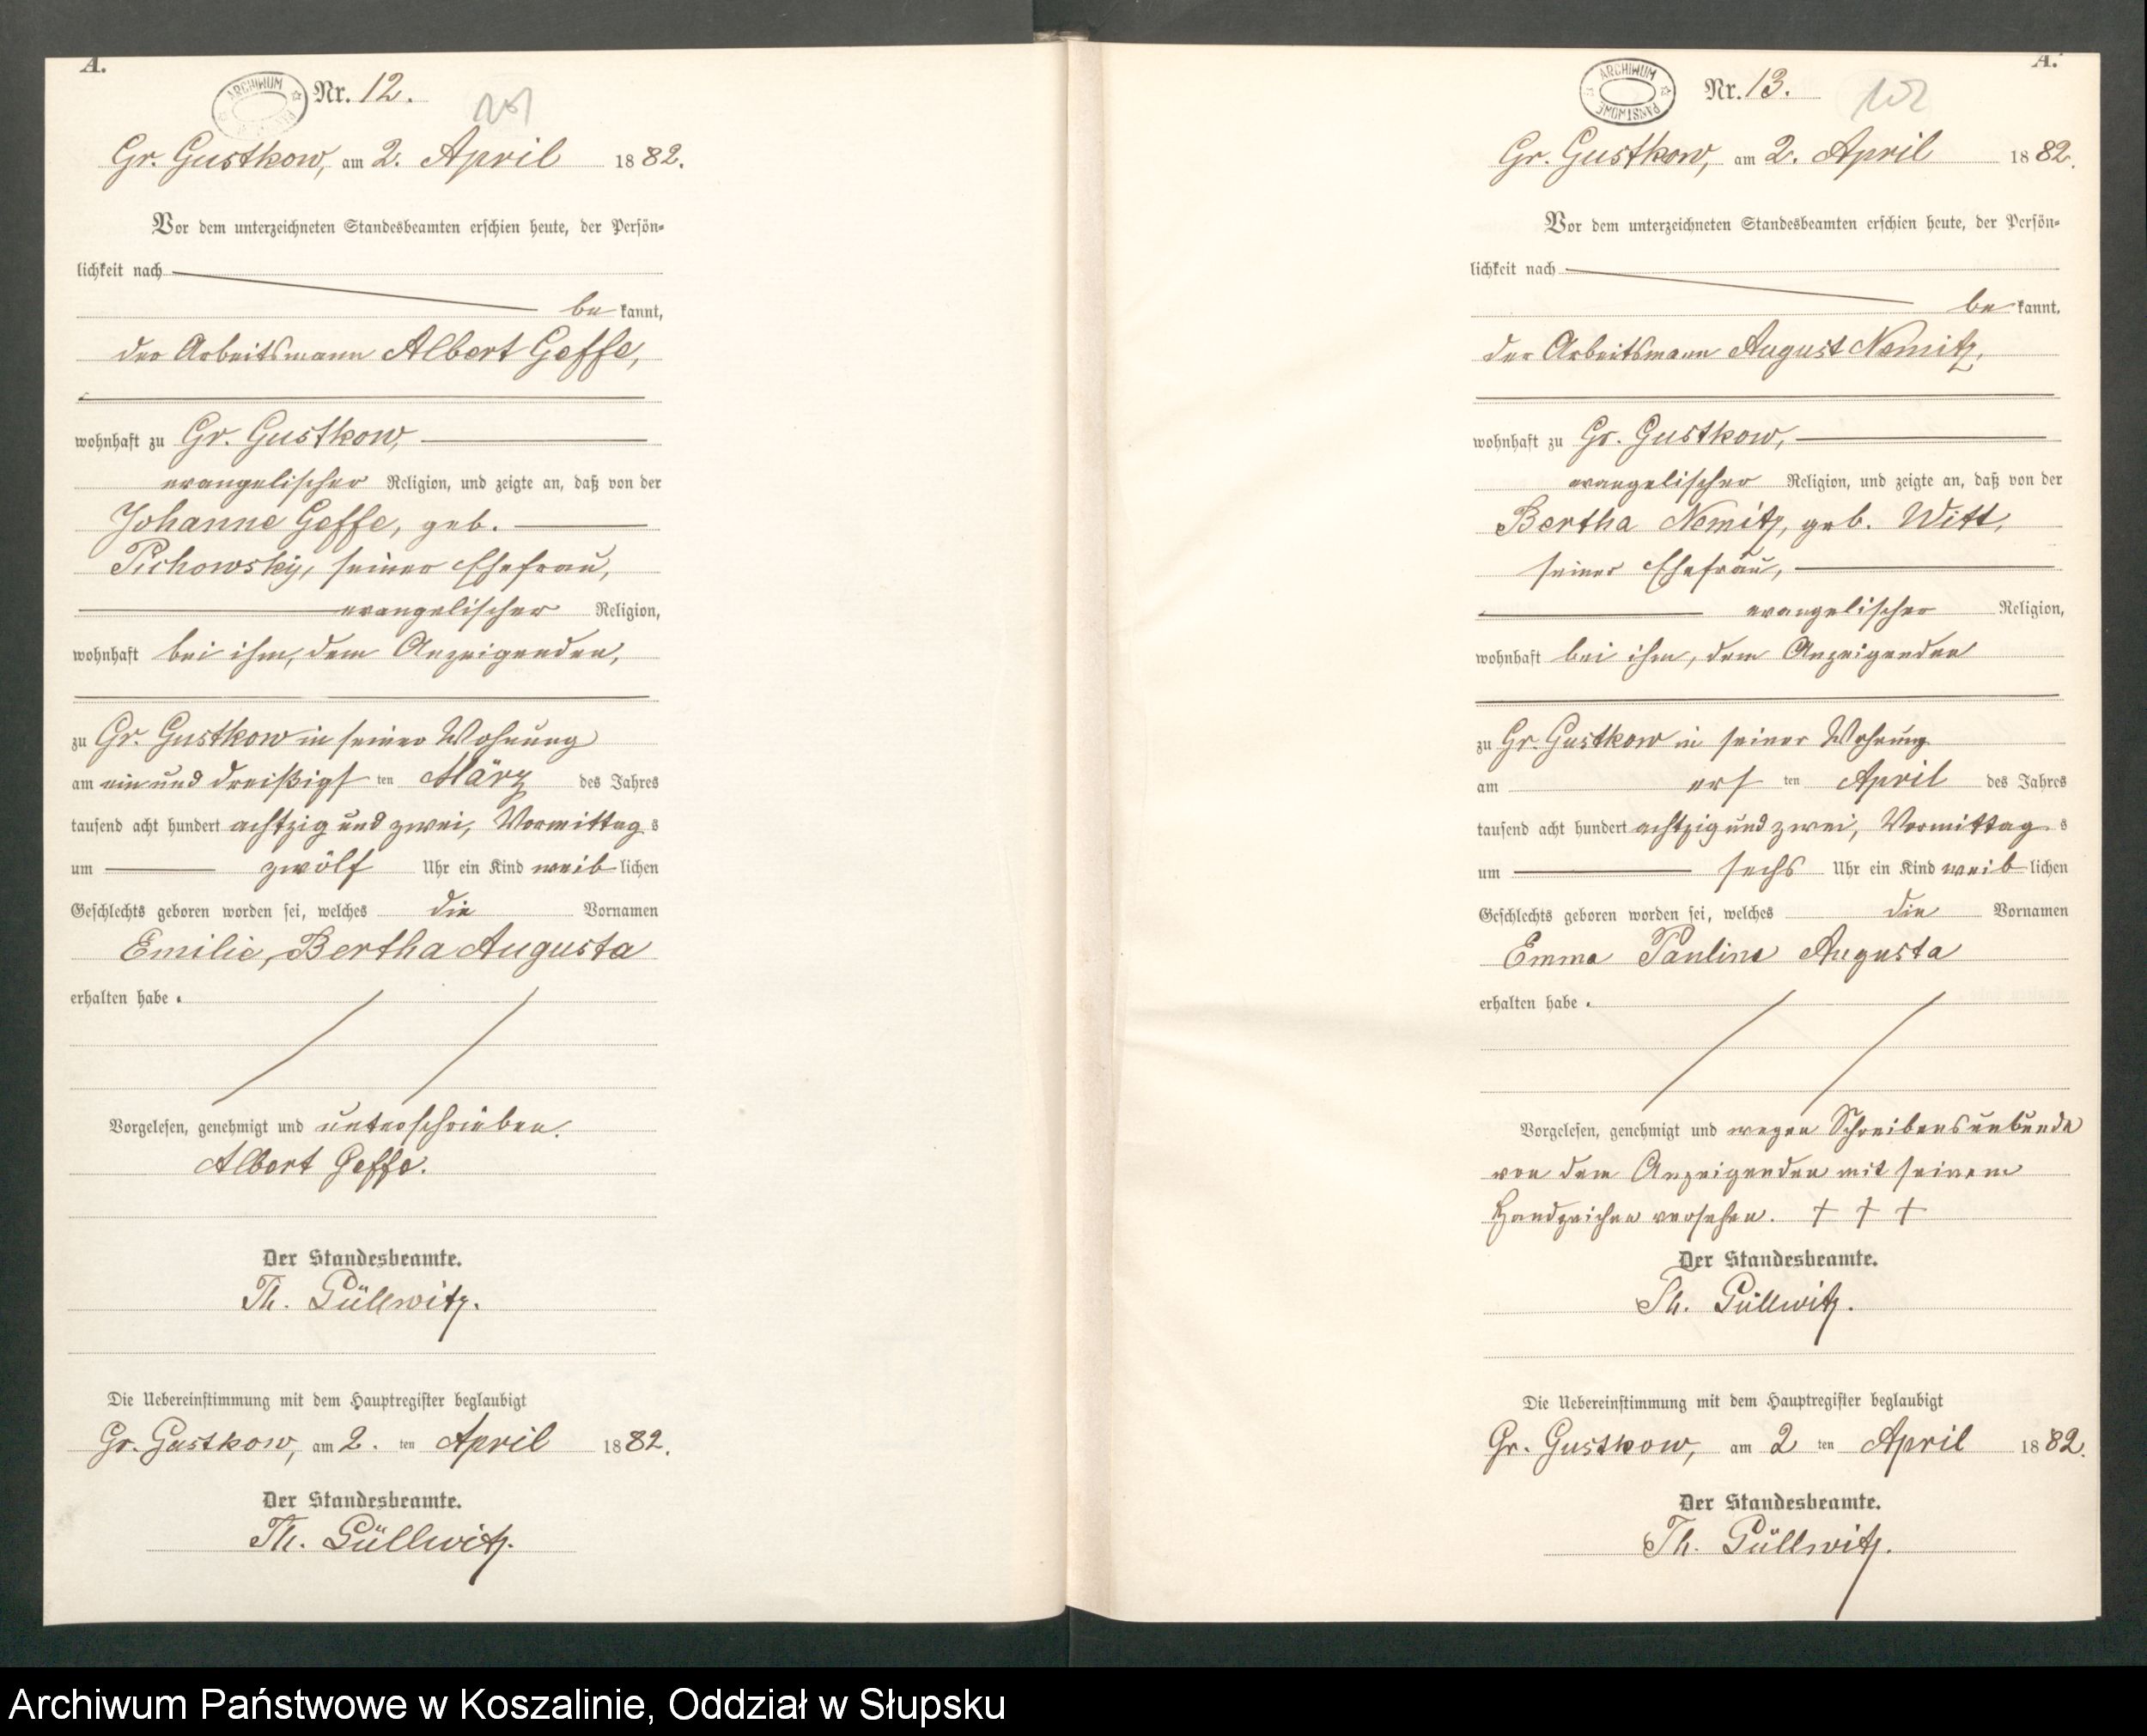 A.
ARCHIWUM
Nr. 12.
101
Gr. Gustkow, am 2. April 1882.
Vor dem unterzeichneten Standesbeamten erschien heute, der Persön-
lichkeit nach
bekannt,
der Arbeitsmann Albert Geffe,
wohnhaft zu Gr. Gustkow,
evangelischer Religion, und zeigte an, daß von der
Johanne Geffe, geb.
Pichowsky, seiner Ehefrau,
evangelischer Religion,
wohnhaft bei ihm, dem Anzeigenden,
zu Gr. Gustkow in seiner Wohnung
am ein und dreißigsten März des Jahres
tausend acht hundert achtzig und zwei, Vormittags
um zwölf Uhr ein Kind weiblichen
Geschlechts geboren worden sei, welches die Vornamen
Emilie, Bertha Augusta
erhalten habe.
Vorgelesen, genehmigt und unterschrieben.
Albert Geffe.
Der Standesbeamte.
Th. Güllwitz.
Die Uebereinstimmung mit dem Hauptregister beglaubigt
Gr. Gustkow, am 2. ten April 1882.
Der Standesbeamte.
Th. Güllwitz.
A.
ARCHIWUM PAŃSTWOWE
Nr. 13.
102
Gr. Gustkow, am 2. April 1882.
Vor dem unterzeichneten Standesbeamten erschien heute, der Persön-
lichkeit nach
bekannt,
der Arbeitsmann August Nemitz,
wohnhaft zu Gr. Gustkow,
evangelischer Religion, und zeigte an, daß von der
Bertha Nemitz, geb. Witt,
seiner Ehefrau,
evangelischer Religion,
wohnhaft bei ihm, dem Anzeigenden
zu Gr. Gustkow in seiner Wohnung
am ersten April des Jahres
tausend acht hundert achtzig und zwei, Vormittags
um sechs Uhr ein Kind weiblichen
Geschlechts geboren worden sei, welches die Vornamen
Emma Pauline Augusta
erhalten habe.
Vorgelesen, genehmigt und wegen Schreibensunkunde
von dem Anzeigenden mit seinem
Handzeichen versehen. † † †
Der Standesbeamte.
Th. Güllwitz.
Die Uebereinstimmung mit dem Hauptregister beglaubigt
Gr. Gustkow, am 2 ten April 1882.
Der Standesbeamte.
Th. Güllwitz.
Archiwum Państwowe w Koszalinie, Oddział w Słupsku